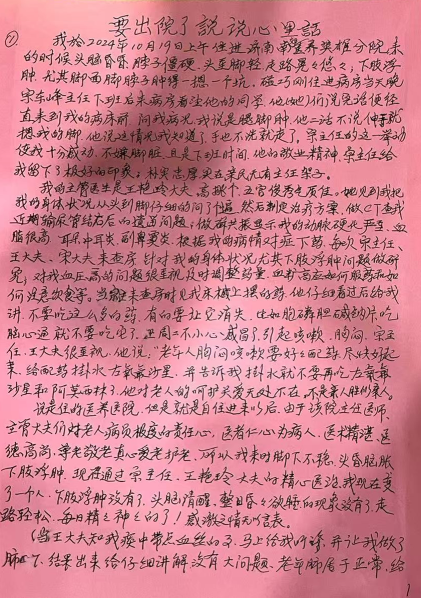 要出院了说说心里话
我於2024年10月19日上午住进济南 医养英雄分院,来
的时候头脑昏昏脖子僵硬,头至脚轻走路晃々悠々;下肢浮
肿,尤其脚面脚脖子肿得一摁一个坑。碰巧刚住进病房当天晚
宋东峰主任下班后来病房看注他的同学
直来到我的病床前问我病况,我说是腿脚肿,他二话不说伸手就
摁我的脚,他说这情况我知道了手也不洗就走了,宋主任的这一举动
使我十分感动,不嫌脚脏且是下班时间,他的敬业精神,宋主任给
我留下了极好的印象:朴实忠厚来民没有主任架子。
我的主管医生是王艳玲大夫,高挑个五官俊秀气质佳。她见到我把
我的身体状况从头到脚仔细的问了个遍,然后制定治疗方案,做CT查我
近期输尿管结石后的遗留问题;做 共振显示我的动脉硬化严重,血
脂很高,耳朵中耳炎,副鼻窦炎,根据我的病情对症下药,每次宋主任、
王大夫、宋大夫来查房,针对我的身体状况尤其下肢浮肿问题做研
究,对我血压高的问题很重视及时调整药量,血粘高应如何服药和如
何注意饮食等。当 来查房时见我床柜上摆的药,他仔细看过后给我
讲,不要吃这么多的药,有的要社 消失,比如胞磷胆碱钠片,吃
脑心通就不要吃它了。上周二不小心感冒了引起咳嗽、胸闷,宋主
任、王大夫很重视,他说:“老年人胸闷咳嗽要好々配药尽快好起
来,给配药挂水左氧氟沙星,并告诉我挂水就不要再吃左氧氟
沙星和阿莫西林了,他对老人的呵护关爱无处不在,不是亲人胜似亲人。
说是住的医养医院,但是就是自住进来以后,由于该院主任医师、
主管大夫们对老人病员极度的责任心,医者仁心为病人,医术精湛,医
德高尚,尊老敬老真心爱老护老,所以我来时脚下不稳,头昏脑胀
下肢浮肿,现在通过宋主任、王艳玲大夫的精心医治,我现在变
了一个人,下肢浮肿没有了,头脑清醒,整日昏々欲睡的现象没有了,走
路轻松,每日精々神々的了!感激之情无以言表。
(当王大夫知我痰中带点血丝的
结果出来给仔细讲解没有大问题,老年肺属于正常,给
1